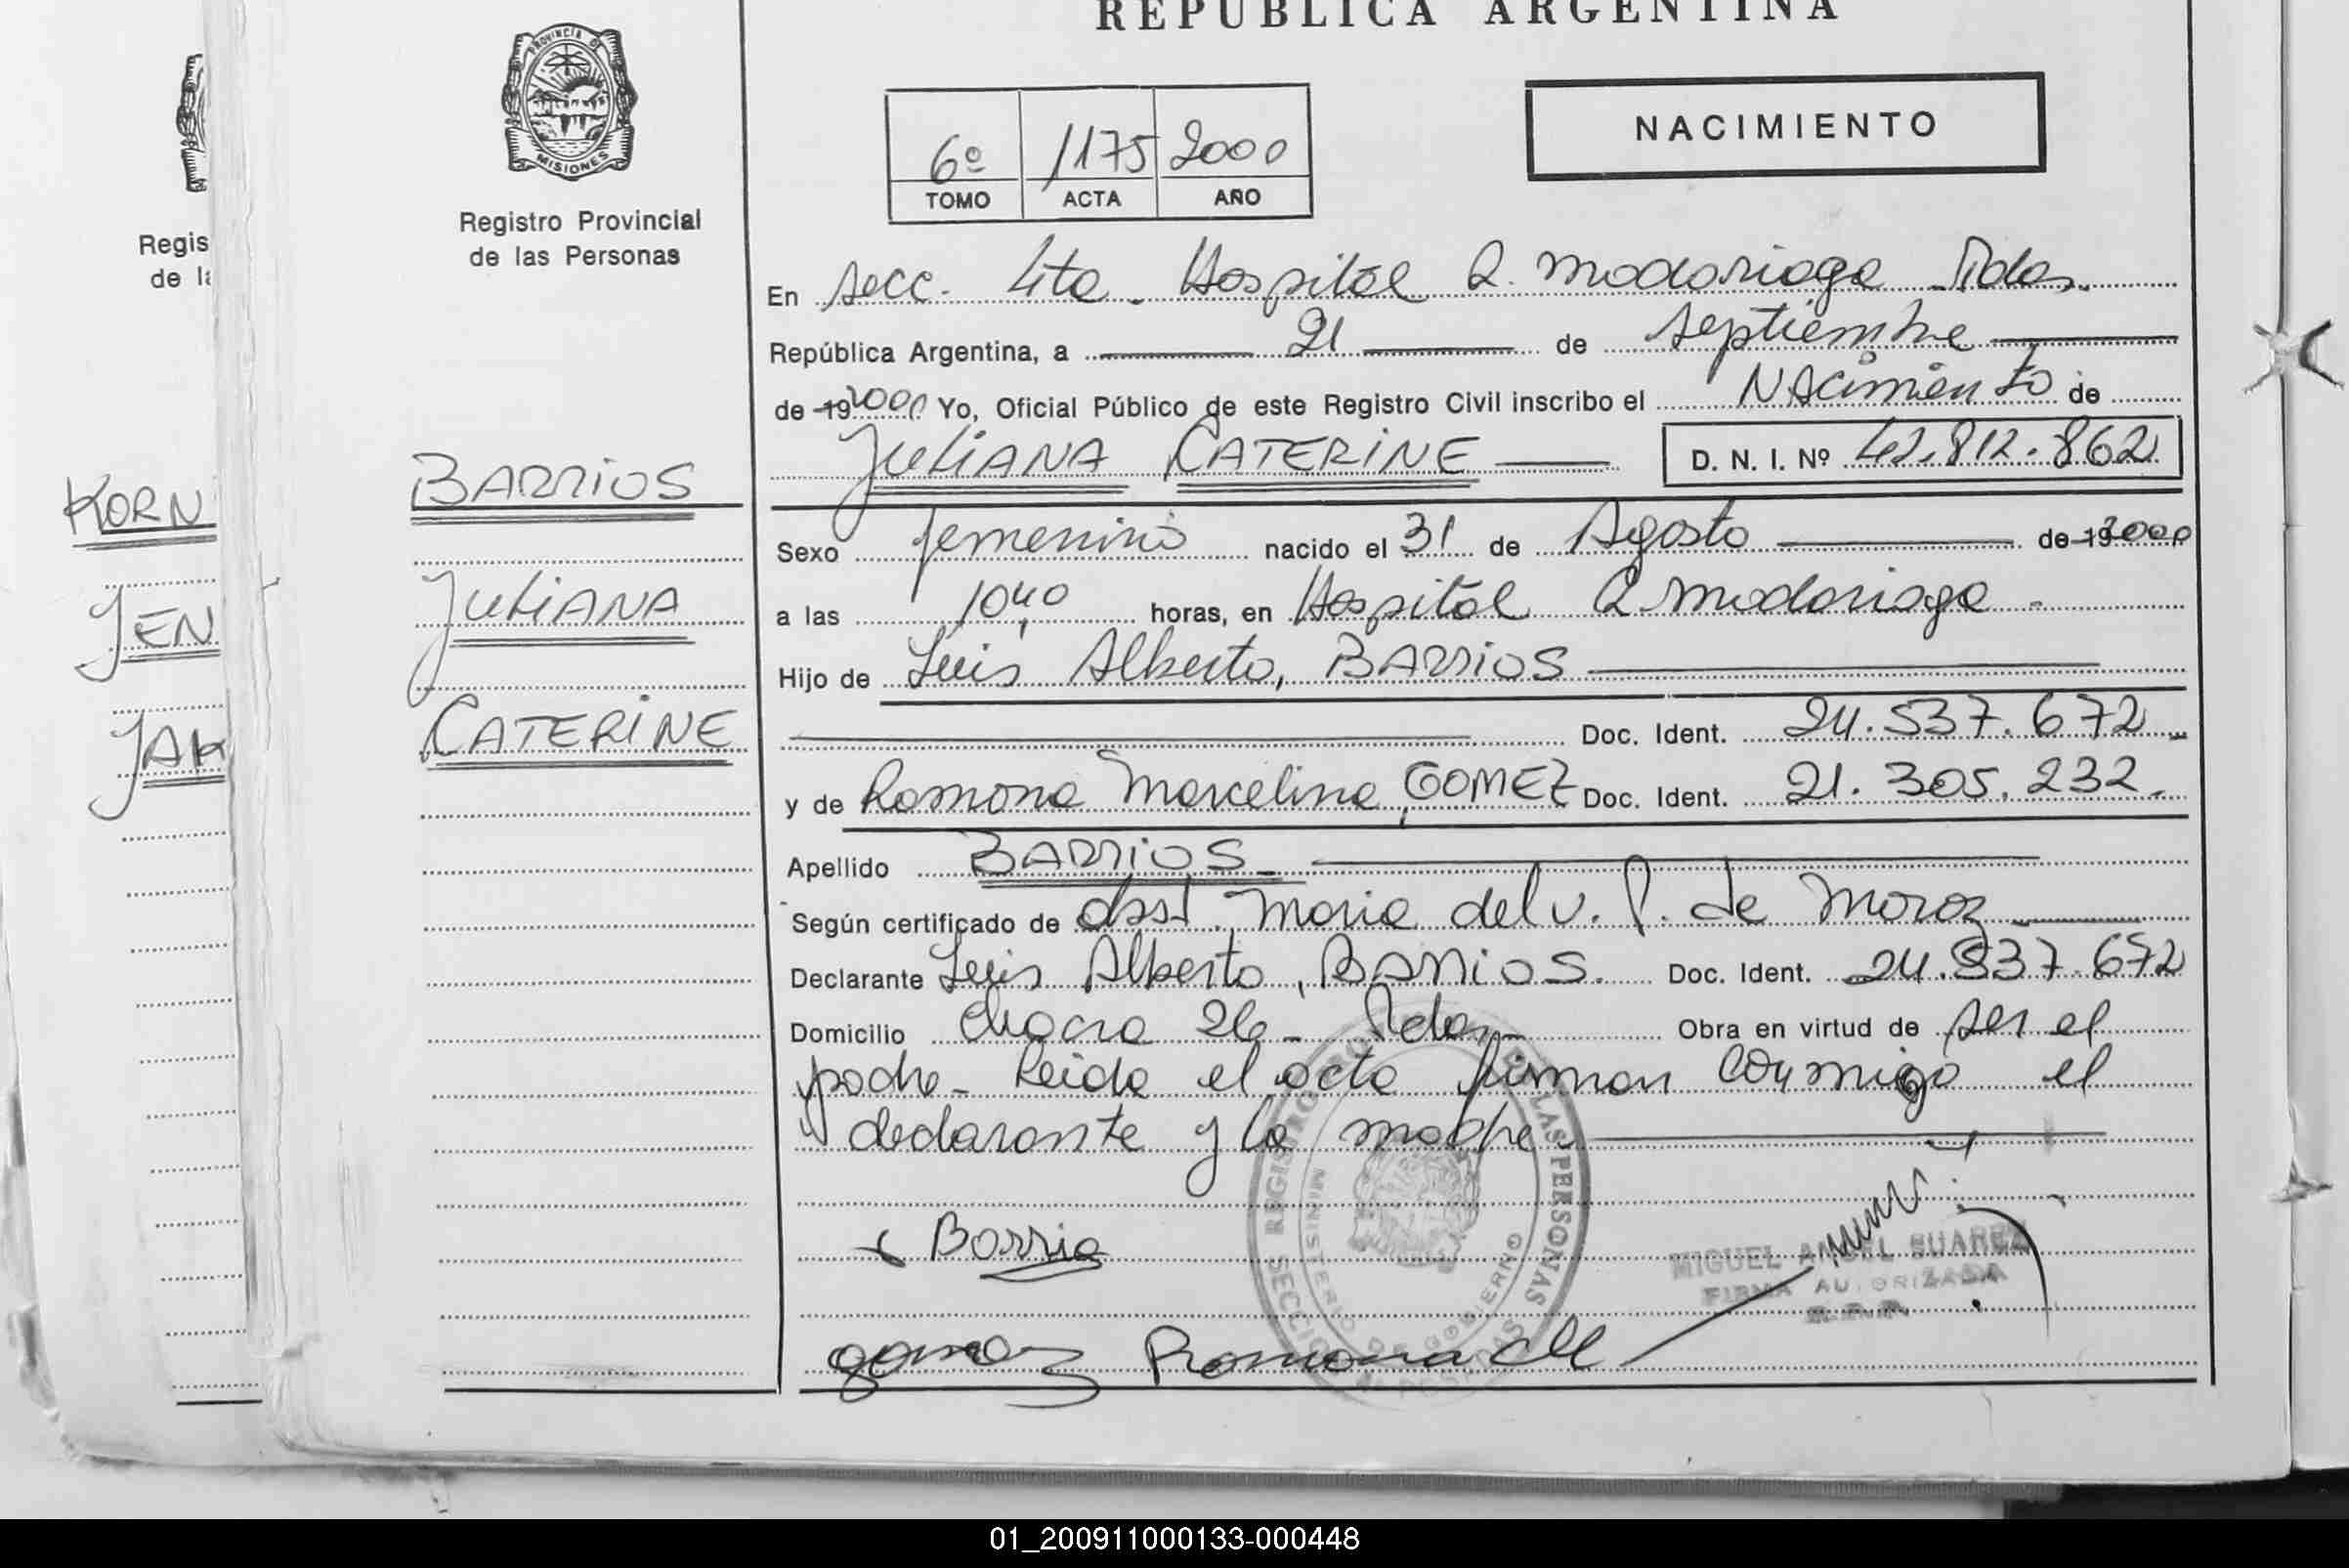 REPUBLICA ARGENTINA
PROVINCIA DE
MISIONES
Registro Provincial
de las Personas
6º 1175 2000
TOMO ACTA AÑO
NACIMIENTO
En secc. 4ta. Hospital R. Madariaga Pdas.
República Argentina, a 21 de septiembre
de 19 2000 Yo, Oficial Público de este Registro Civil inscribo el NAcimiento de
JULIANA CATERINE D. N. I. Nº 42.812.862
Sexo femenino nacido el 31 de Agosto de 19 2000
a las 10,40 horas, en Hospital R Madariaga
Hijo de Luis Alberto, BARRIOS
Doc. Ident. 24.537.672
y de Ramona Marcelina, GOMEZ Doc. Ident. 21.305.232.
Apellido BARRIOS
Según certificado de obst. Maria del v. P. de Moroz
Declarante Luis Alberto, BARRIOS. Doc. Ident. 24.537.672
Domicilio chacra 26 - Pdas Obra en virtud de ser el
padre - Leida el acta firman conmigo el
declarante y la madre
Barrio
gomez Ramona M
SECCION REGISTRO PROV. DE LAS PERSONAS
MINISTERIO DE GOBIERNO
MIGUEL ANGEL SUAREZ
FIRMA AUTORIZADA
BARRIOS
JULIANA
CATERINE
Regis
de la
KORN
JEN
JAK
01_200911000133-000448